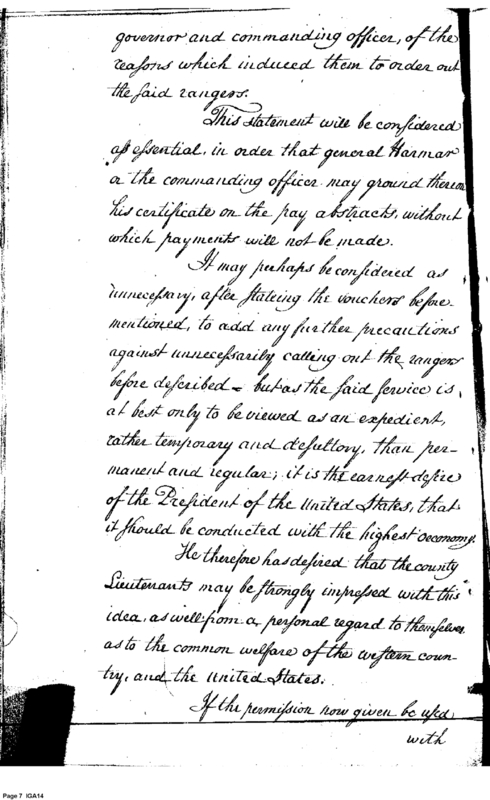 governor and commanding officer, of the
reasons which induced them to order out
the said rangers.
This statement will be considered
as essential, in order that general Harmar
or the commanding officer may ground thereon
his certificate on the pay abstracts, without
which payments will not be made.
It may perhaps be considered as
unnecessary, after stateing the vouchers before-
mentioned, to add any further precautions
against unnecessarily calling out the rangers
before described – but as the said service is,
at best only to be viewed as an expedient,
rather temporary and desultory, than per-
manent and regular; it is the earnest desire
of the President of the United States, that
it should be conducted with the highest oeconomy.
He therefore has desired that the county
Lieutenants may be strongly impressed with this
idea, as well from a personal regard to themselves
as to the common welfare of the western coun-
try, and the United States.
If the permission now given be used,
with
Page 7 IGA14